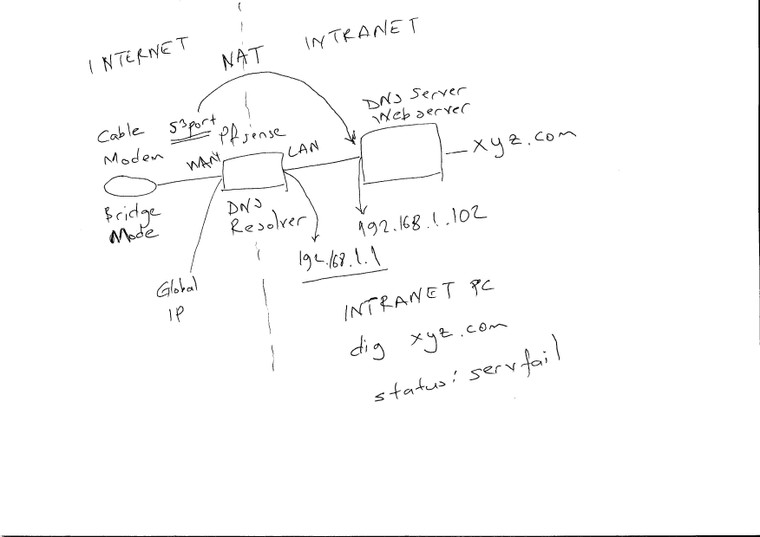 INTERNET
NAT
INTRANET
Cable
Modem
53port
Pfsense
WAN
LAN
DNS Server
Webserver
xyz.com
Bridge
Mode
DNS
Resolver
192.168.1.102
192.168.1.1
Global
IP
INTRANET PC
dig xyz.com
status: servfail